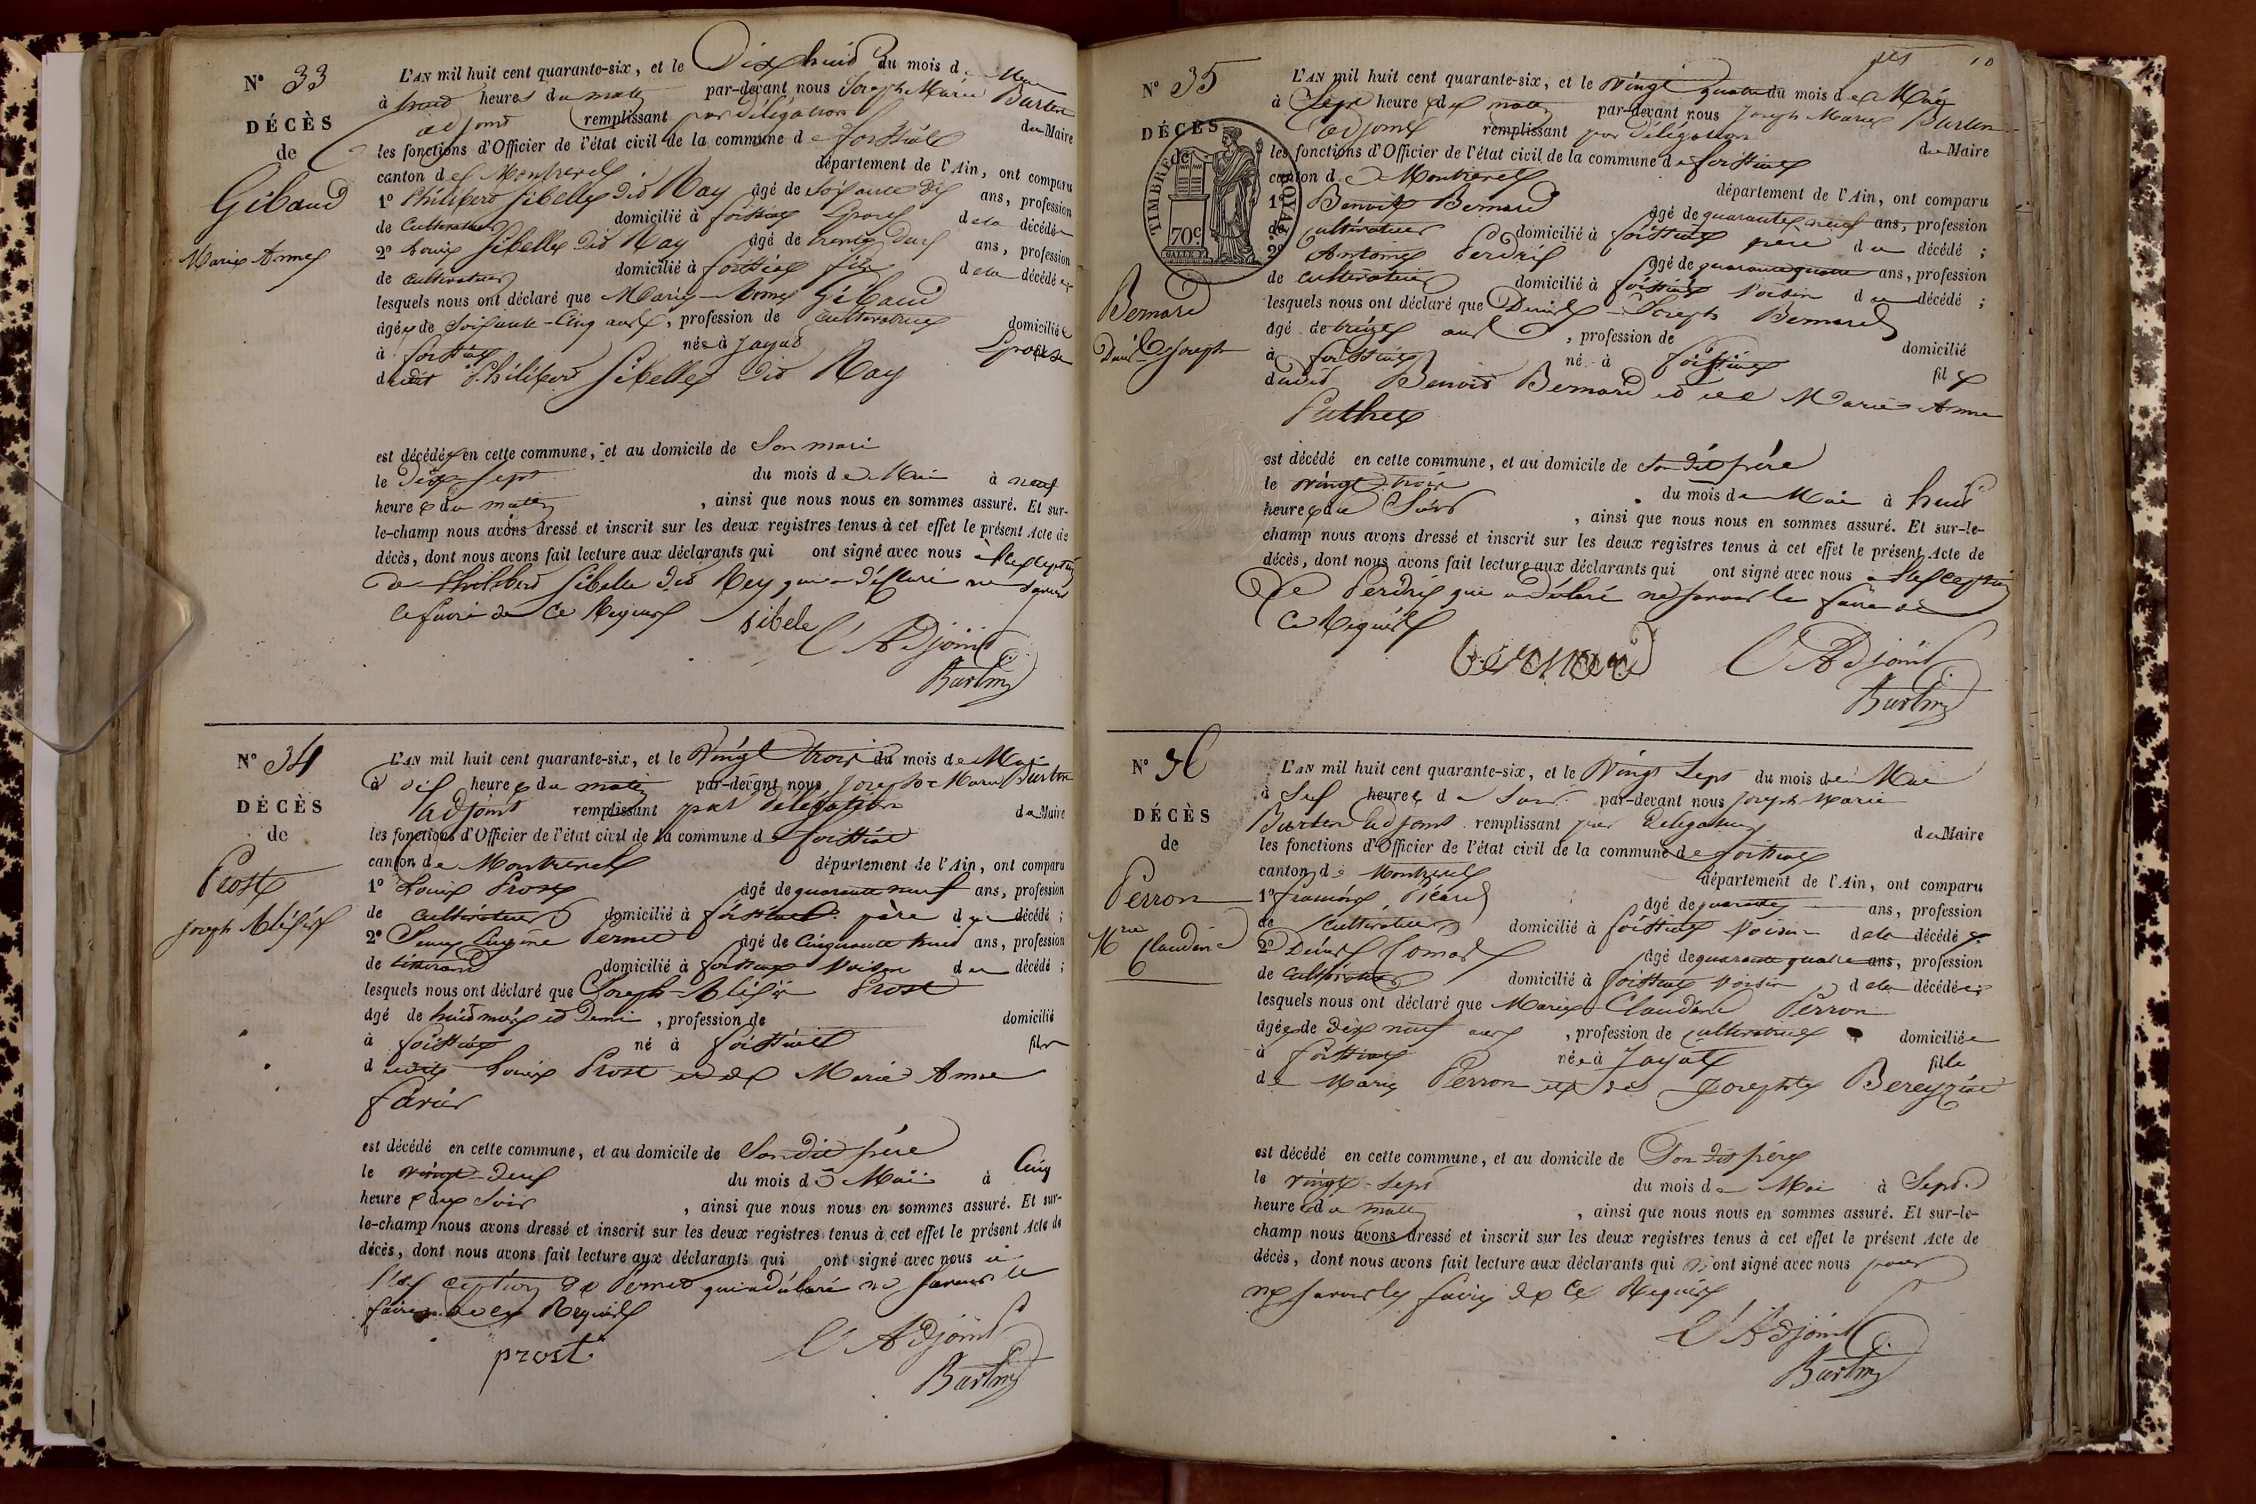 N° 33
DÉCÈS
de
Gibaud
Marie Anne
L'AN mil huit cent quarante-six, et le Dix huit du mois de Mai
à huit heures du matin par-devant nous Joseph Marie Burtin
adjoint remplissant par délégation du Maire
les fonctions d'Officier de l'état civil de la commune de foissiat
canton de Montrevel département de l'Ain, ont comparu
1° Philibert Sibelle dit Ray âgé de soixante dix ans, profession
de cultivateur domicilié à foissiat Epoux de la décédée
2° Louis Sibelle dit Ray âgé de trente deux ans, profession
de cultivateur domicilié à foissiat fils de la décédée
lesquels nous ont déclaré que Marie Anne Gibaud
âgée de soixante-cinq ans, profession de cultivatrice domiciliée
à foissiat née à Jayat Epouse
dudit Philibert Sibelle dit Ray
est décédée en cette commune, et au domicile de Son mari
le Dix-sept du mois de Mai à neuf
heures du matin, ainsi que nous nous en sommes assuré. Et sur-
le-champ nous avons dressé et inscrit sur les deux registres tenus à cet effet le présent Acte de
décès, dont nous avons fait lecture aux déclarants qui ont signé avec nous à l'exception
de Philibert Sibelle dit Rey qui a déclaré ne savoir
le faire de ce Requis
sibele
L'Adjoint
Burtin
N° 34
DÉCÈS
de
Prost
Joseph Aléxis
L'AN mil huit cent quarante-six, et le Vingt trois du mois de Mai
à dix heures du matin par-devant nous Joseph Marie Burtin
adjoint remplissant par délégation du Maire
les fonctions d'Officier de l'état civil de la commune de foissiat
canton de Montrevel département de l'Ain, ont comparu
1° Louis Prost âgé de quarante neuf ans, profession
de cultivateur domicilié à foissiat père du décédé ;
2° Eugène Pernet âgé de Cinquante huit ans, profession
de tisserand domicilié à foissiat Voisin du décédé ;
lesquels nous ont déclaré que Joseph-Aléxis Prost
âgé de huit mois et Demi, profession de domicilié
à foissiat né à foissiat fils
dudit Louis Prost et de Marie Anne
favier
est décédé en cette commune, et au domicile de Son dit père
le vingt-deux du mois de Mai à Cinq
heures du Soir, ainsi que nous nous en sommes assuré. Et sur-
le-champ nous avons dressé et inscrit sur les deux registres tenus à cet effet le présent Acte de
décès, dont nous avons fait lecture aux déclarants qui ont signé avec nous à
l'exception de Pernet qui a déclaré ne savoir le
faire de ce Requis
prost
L'Adjoint
Burtin
10
N° 35
DÉCÈS
de
TIMBRE ROYAL
70c
Bernard
Denis Joseph
L'AN mil huit cent quarante-six, et le vingt quatre du mois de Mai
à Sept heures du matin par-devant nous Joseph Marie Burtin
adjoint remplissant par délégation du Maire
les fonctions d'Officier de l'état civil de la commune de foissiat
canton de Montrevel département de l'Ain, ont comparu
1° Benoit Bernard âgé de quarante neuf ans, profession
de cultivateur domicilié à foissiat père du décédé ;
2° Antoine Perdrix âgé de quarante quatre ans, profession
de cultivateur domicilié à foissiat Voisin du décédé ;
lesquels nous ont déclaré que Denis Joseph Bernard
âgé de treize ans, profession de domicilié
à foissiat né à foissiat fils
dudit Benoit Bernard et de Marie Anne
Puthet
est décédé en cette commune, et au domicile de son dit père
le vingt-trois du mois de Mai à huit
heures du Soir, ainsi que nous nous en sommes assuré. Et sur-le-
champ nous avons dressé et inscrit sur les deux registres tenus à cet effet le présent Acte de
décès, dont nous avons fait lecture aux déclarants qui ont signé avec nous à l'exception
De Perdrix qui a déclaré ne savoir le faire de
ce Requis
bernard
L'Adjoint
Burtin
N° 36
DÉCÈS
de
Perron
Mie Claudine
L'AN mil huit cent quarante-six, et le Vingt Sept du mois de Mai
à Six heures du Soir par-devant nous Joseph Marie
Burtin adjoint remplissant par délégation du Maire
les fonctions d'Officier de l'état civil de la commune de foissiat
canton de Montrevel département de l'Ain, ont comparu
1° François Picard âgé de quarante ans, profession
de cultivateur domicilié à foissiat Voisin de la décédée
2° Denis Comas âgé de quarante quatre ans, profession
de cultivateur domicilié à foissiat Voisin de la décédée
lesquels nous ont déclaré que Marie Claudine Perron
âgée de dix neuf ans, profession de cultivatrice domiciliée
à foissiat née à Jayat fille
de Marie Perron et de Josephte Bereyziat
est décédé en cette commune, et au domicile de Son dit père
le vingt-sept du mois de Mai à Sept
heures du matin, ainsi que nous nous en sommes assuré. Et sur-le-
champ nous avons dressé et inscrit sur les deux registres tenus à cet effet le présent Acte de
décès, dont nous avons fait lecture aux déclarants qui n'ont signé avec nous pour
ne savoir le faire de ce Requis
L'Adjoint
Burtin